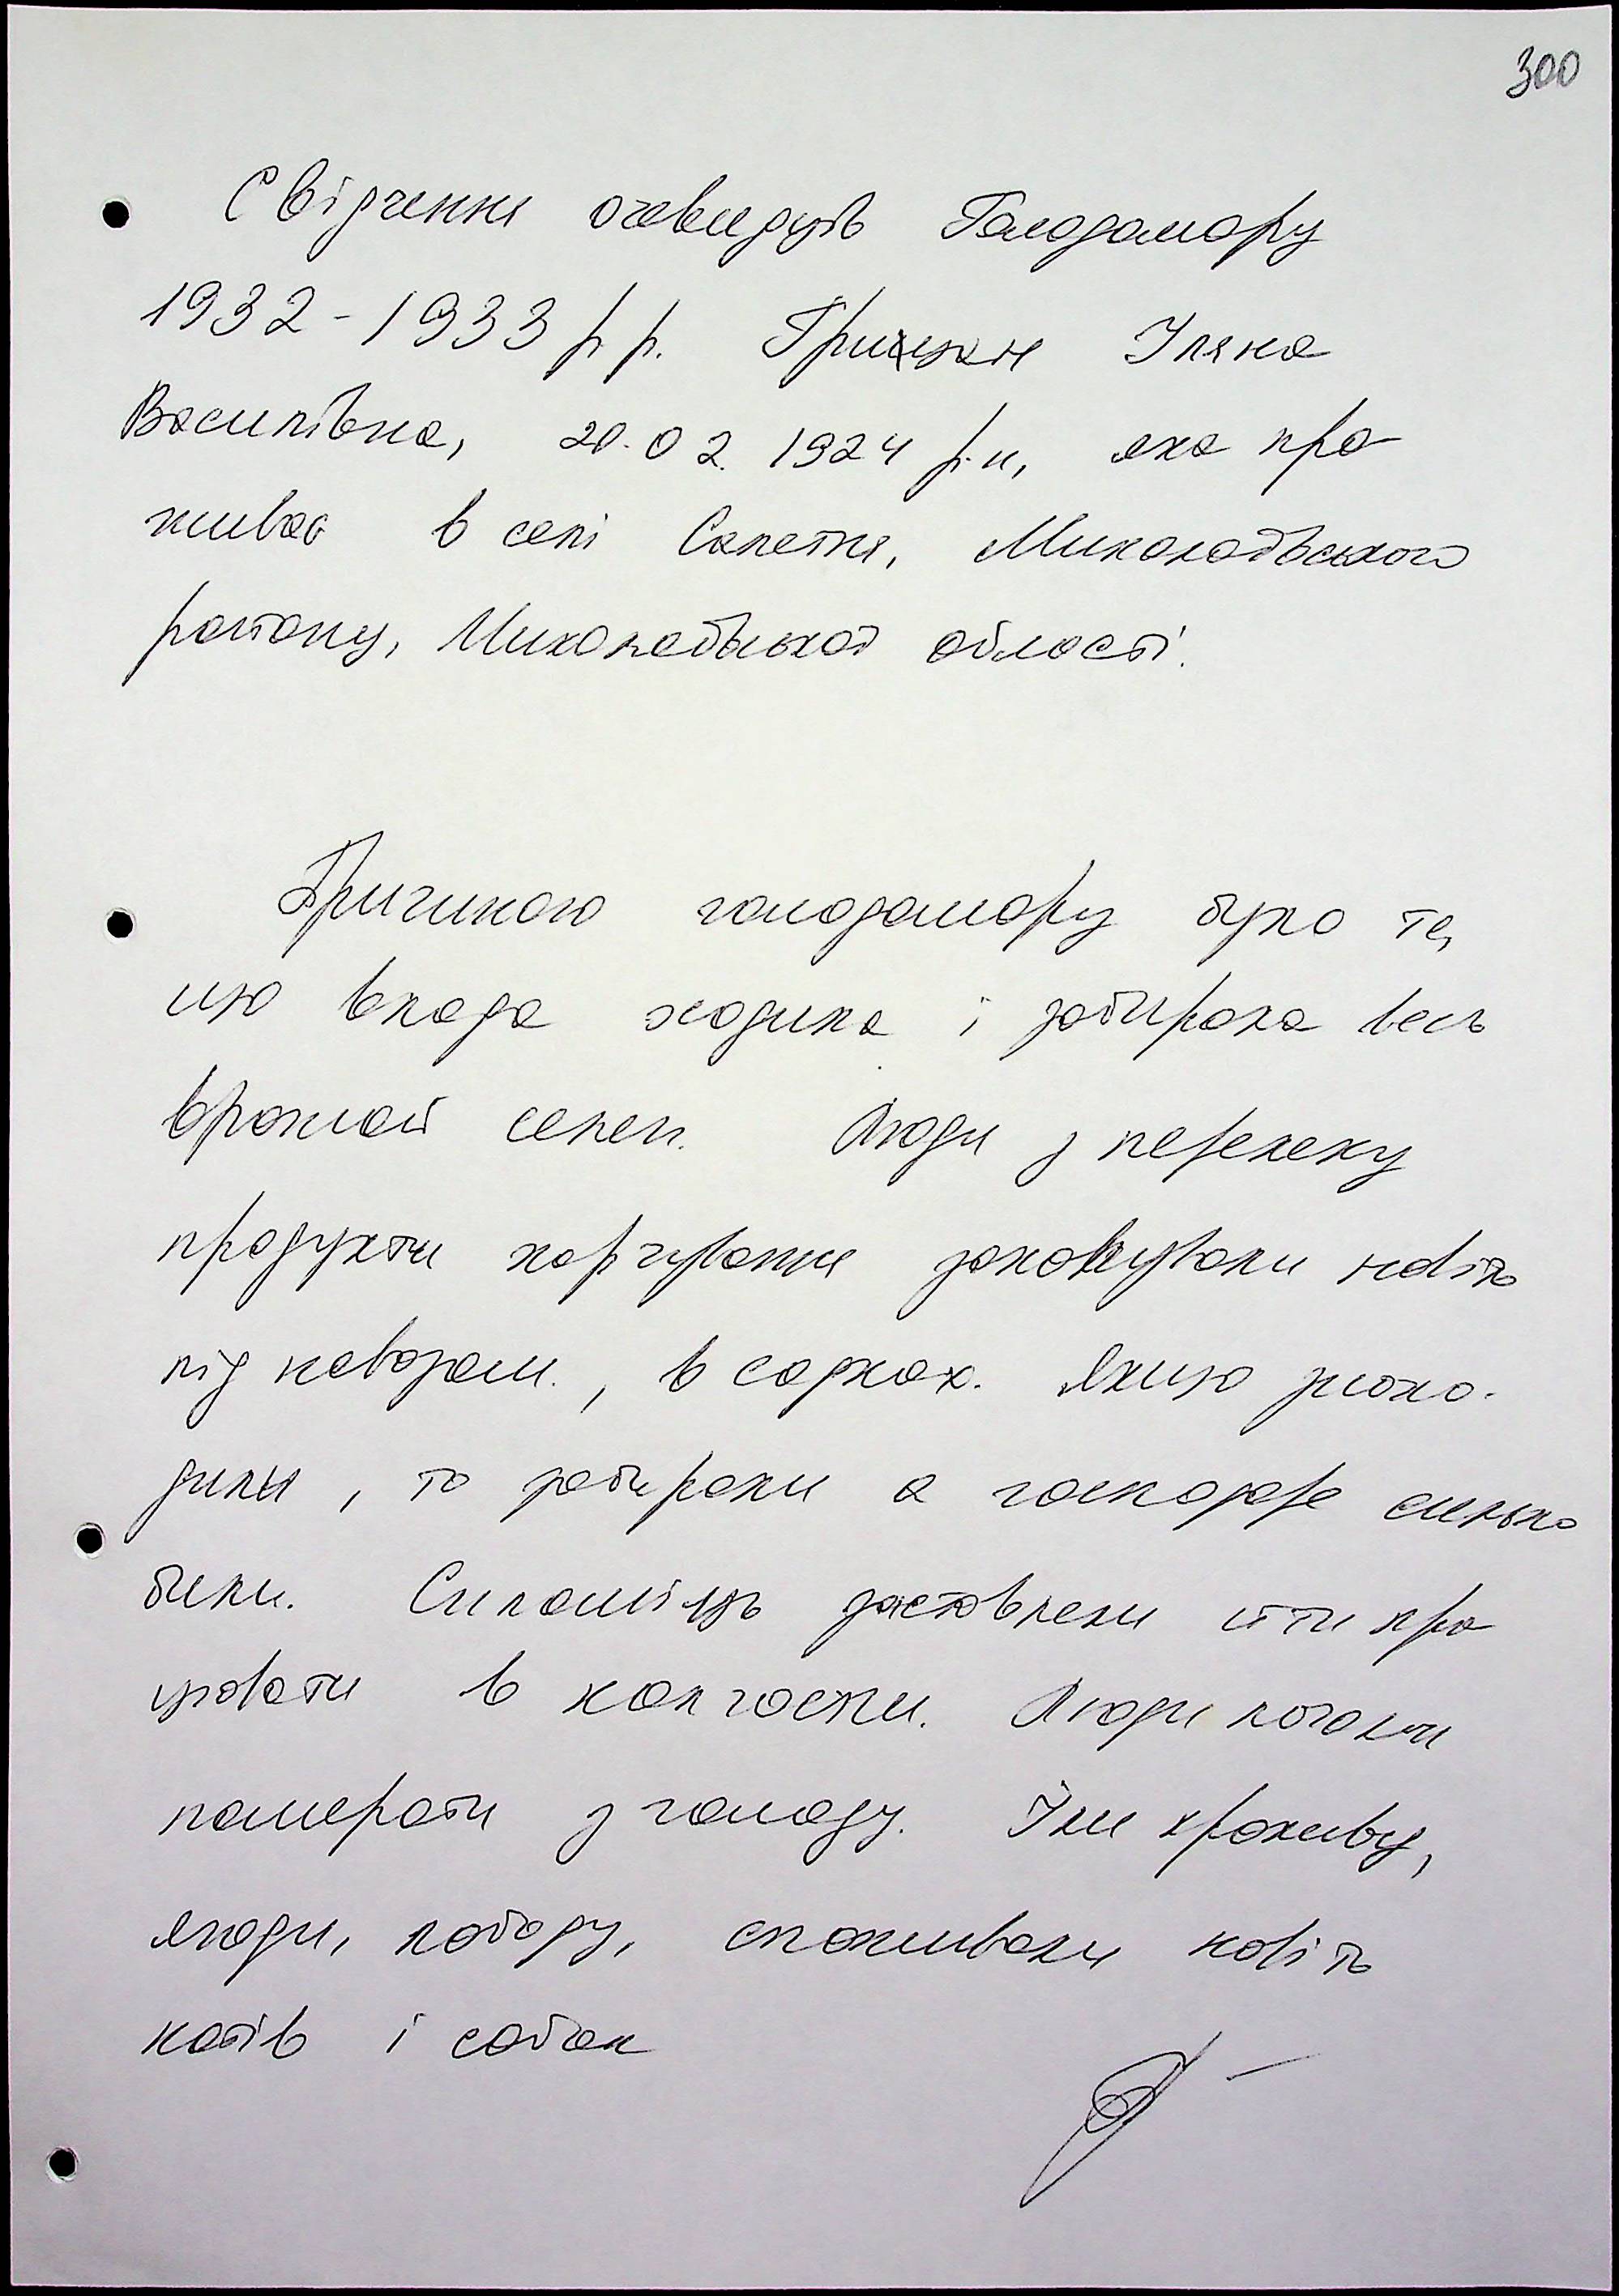 300
Свідчення очевидців Голодомору
1932-1933 р.р. Уляна
Василівна, 20.02.1924 р.н, яка про
живає в селі Сапетня, Миколаївського
району, Миколаївської області.
Причиною голодомору було те,
що влада ходила і забирала весь
врожай селян. Люди з переляку
продукти харчування заховували навіть
під навозом, в садках. Якщо знахо-
дили, то забирали а господаре сильно
били. Силоміць заставляли йти пра
цювати в колгоспи. Люди почали
помирати з голоду. Їли кропиву,
ягоди, лободу, споживали навіть
котів і собак